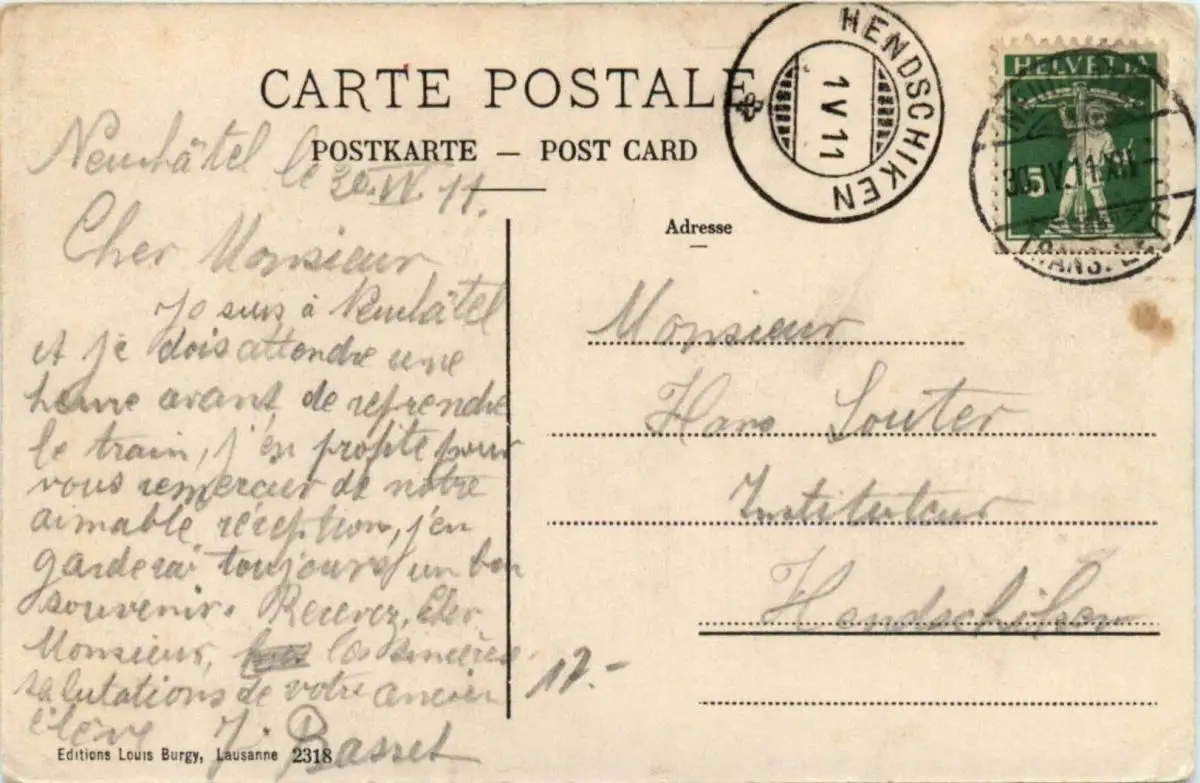 CARTE POSTALE
POSTKARTE — POST CARD
HENDSCHIKEN
1 V 11
HELVETIA
5
30.IV.11.XII
TRANS. LE
Adresse
Neuchâtel le
30.IV.11.
Cher Monsieur
Je suis à Neuchâtel
et je dois attendre une
heure avant de reprendre
le train, j'en profite pour
vous remercier de notre
aimable réception, j'en
garderai toujours un bon
souvenir. Recevez, Cher
Monsieur, les sincères
salutations de votre ancien
élève J. Basset
Monsieur
Hans Souter
Instituteur
Hendschiken
12.-
Editions Louis Burgy, Lausanne 2318